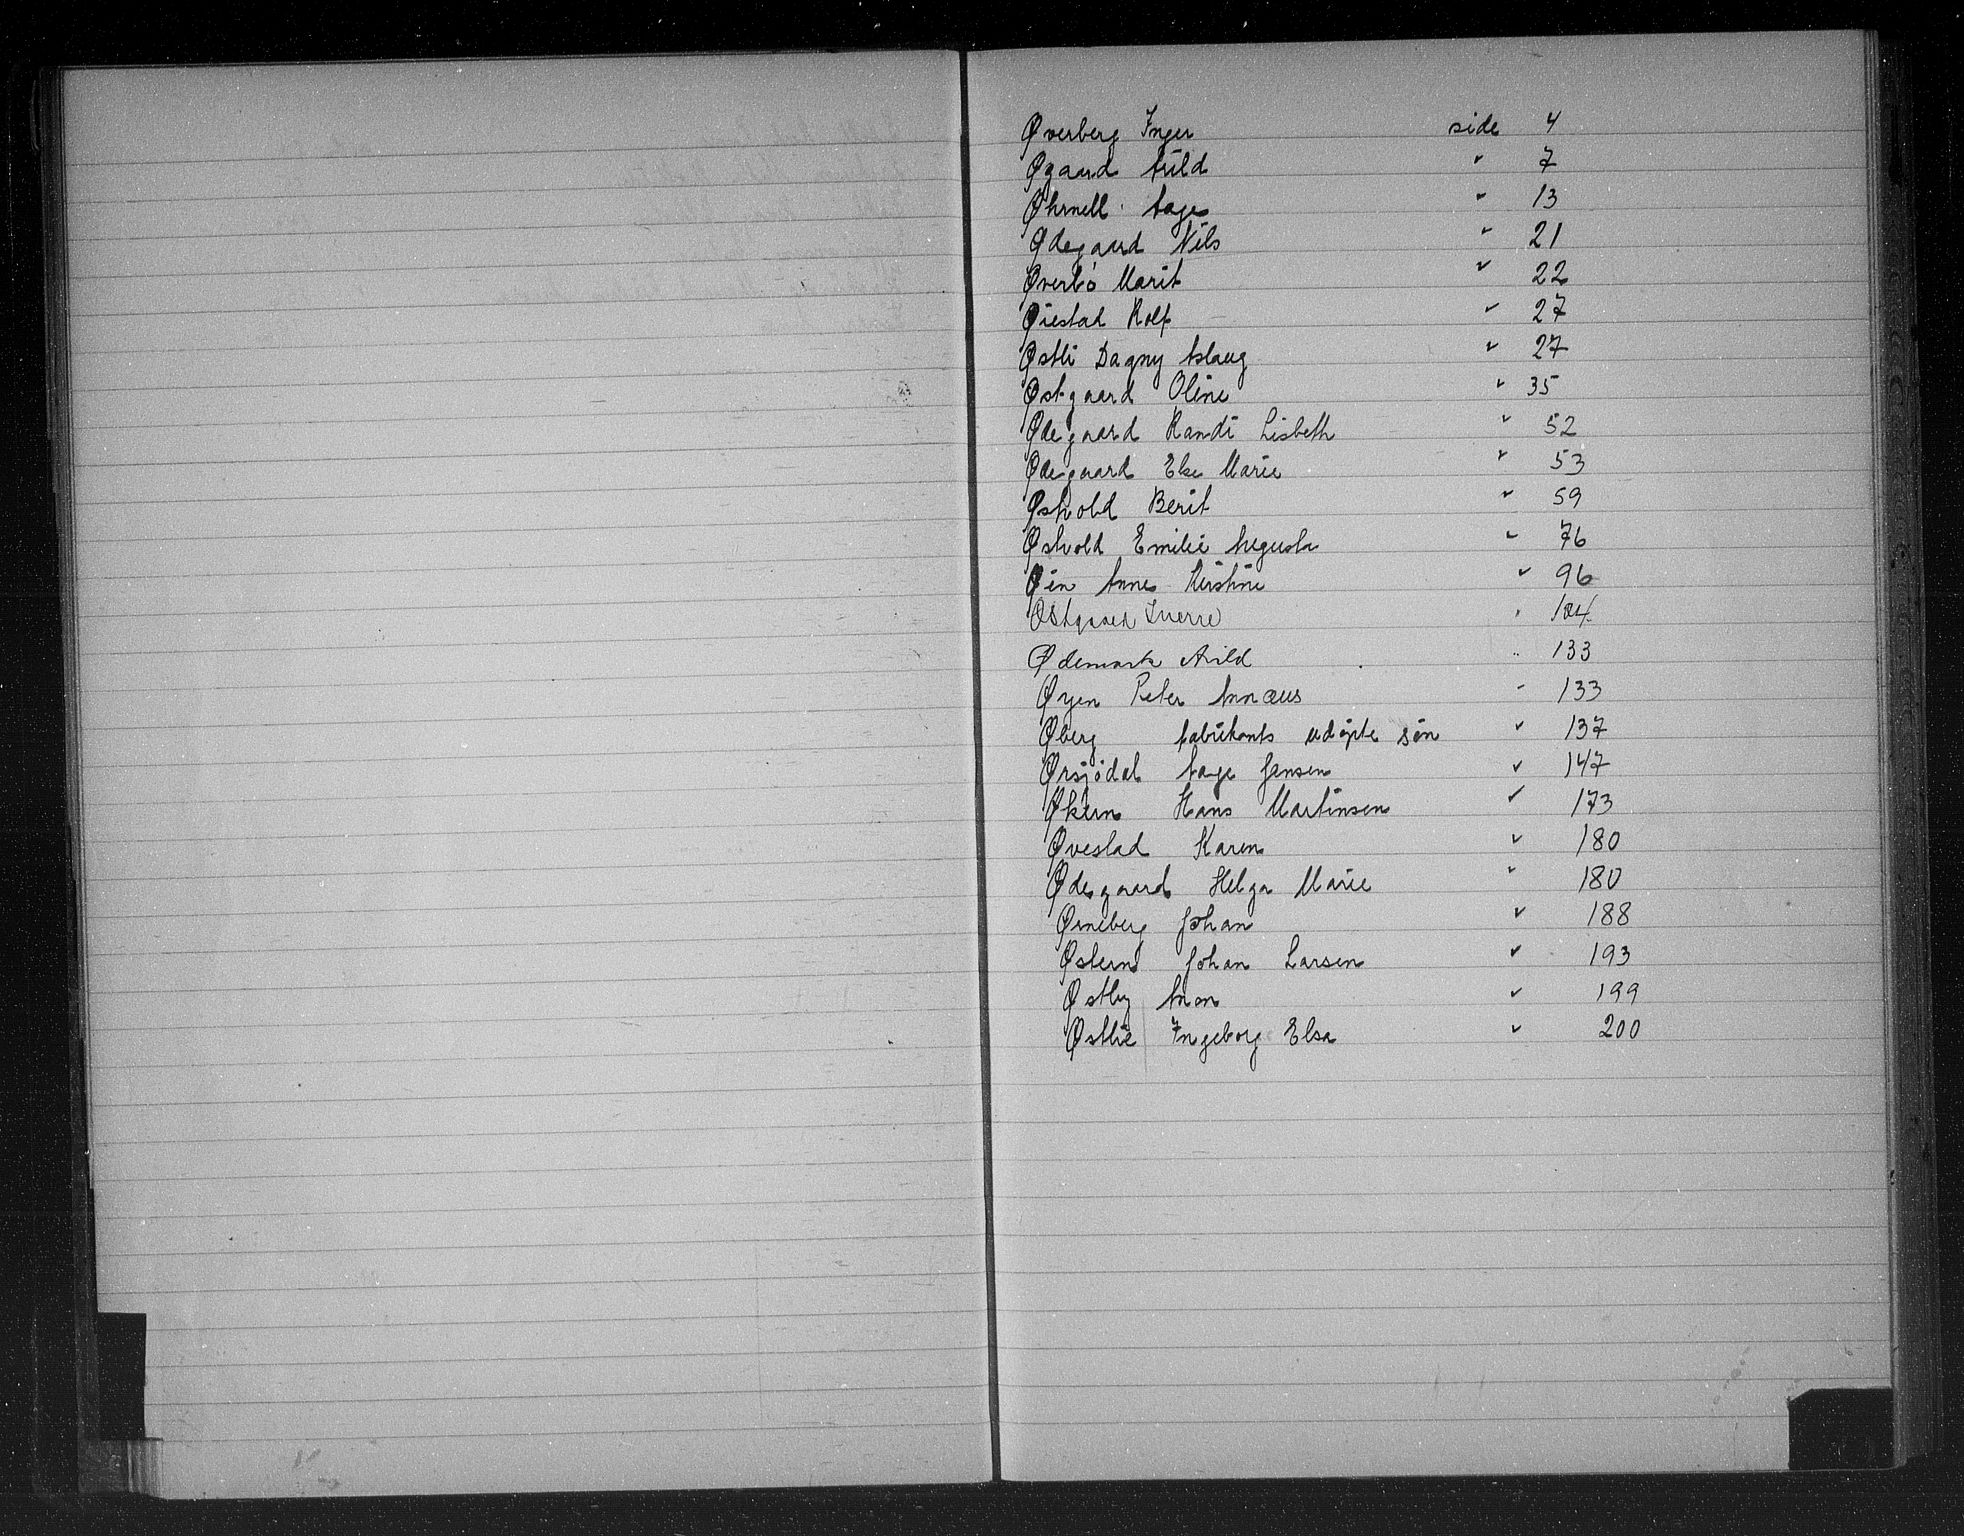 Øverberg Inger side 4
Øgaard Arild " 7
Øhrnell Aage " 13
Ødegaard Nils " 21
Øverbö Marit " 22
Øiestad Rolf " 27
Østli Dagny Aslaug " 27
Østgaard Oline " 35
Ødegaard Randi Lisbeth " 52
Ødegaard Else Marie " 53
Østvold Berit " 59
Østvold Emilie Augusta " 76
Øien Anne Kirstine " 96
Østgaard Sverre " 104
Ødemark Arild " 133
Øyen Peter Annæus " 133
Øberg fabrikants udöpte sön " 137
Ørsjödal Aage Jansen " 147
Økern Hans Martinsen " 173
Øvestad Karen " 180
Ødegaard Helga Marie " 180
Ørneberg Johan " 188
Østern Johan Larsen " 193
Østby Anon " 199
Østlie Ingeborg Elsa " 200